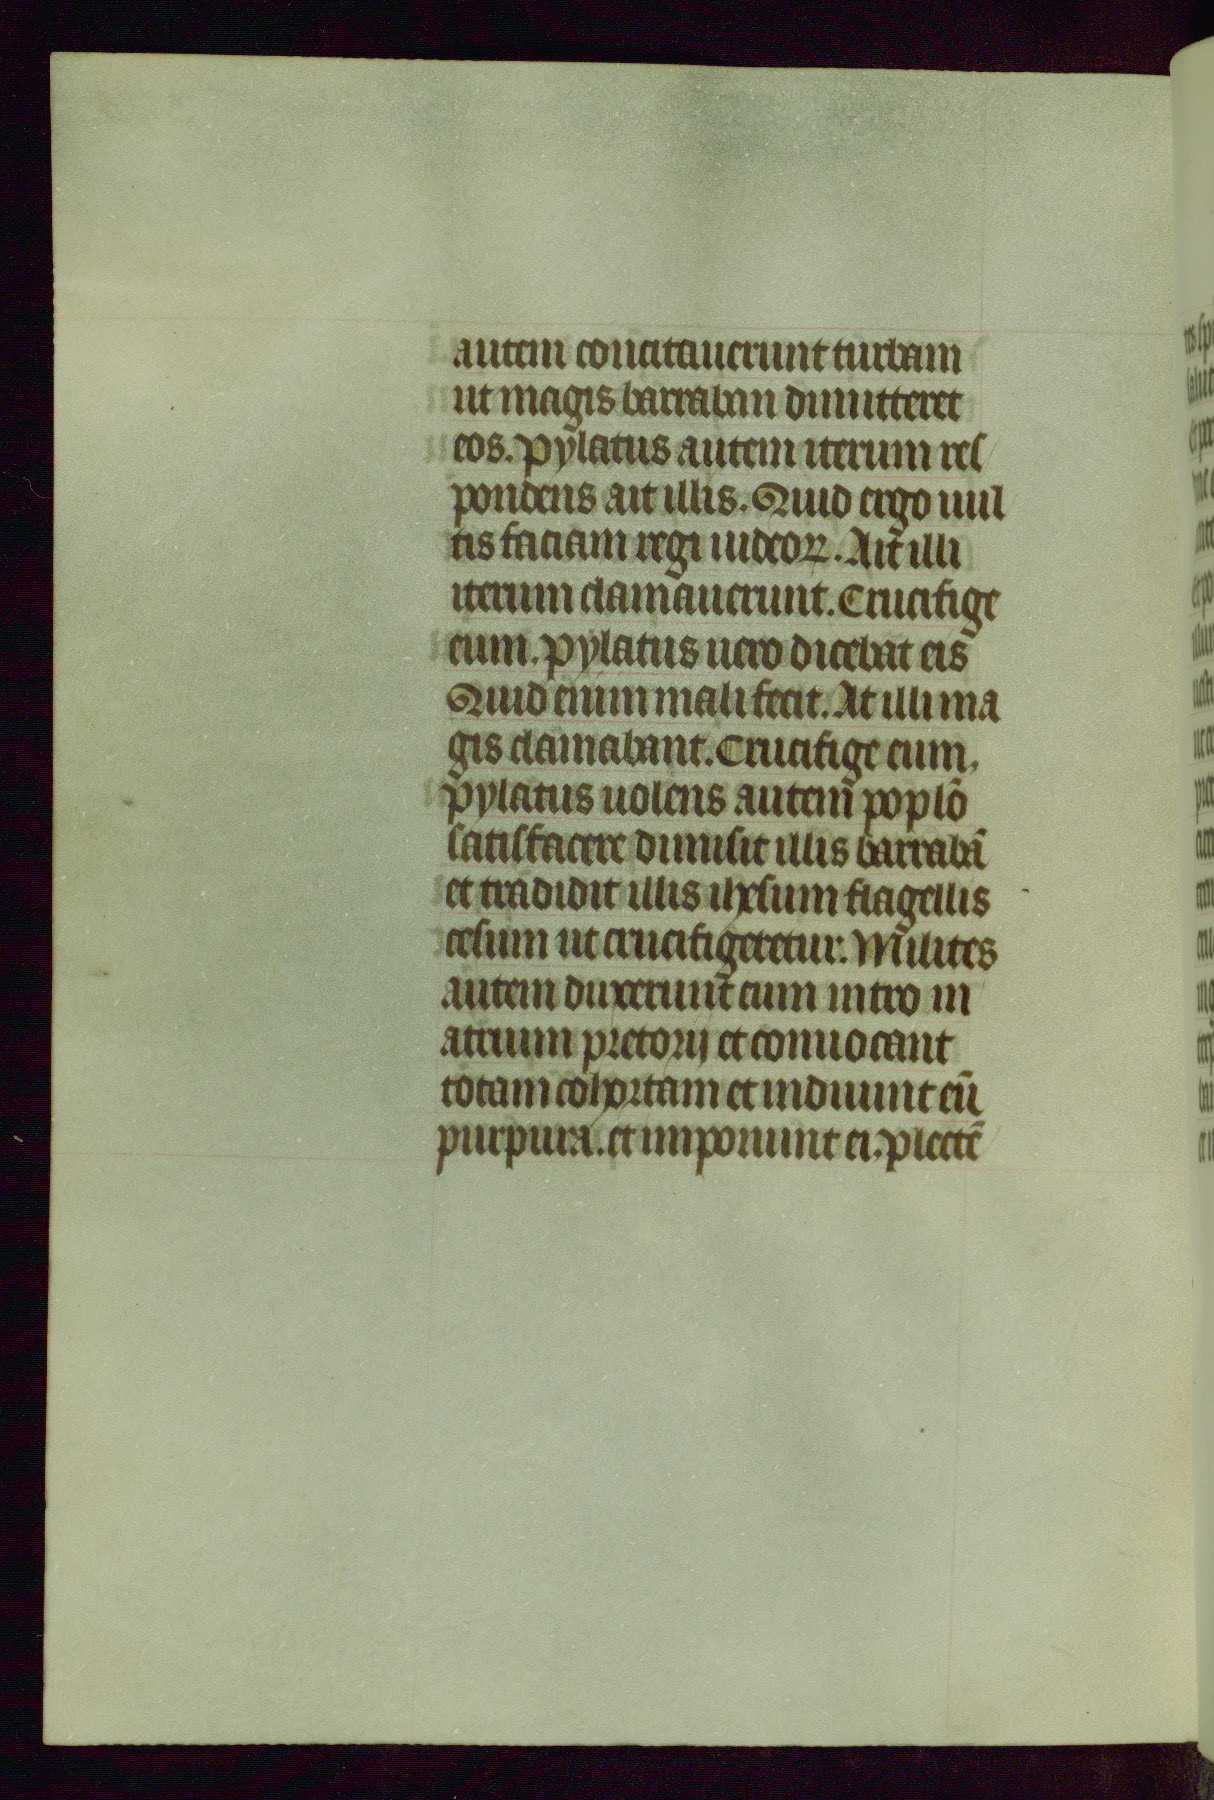 autem concitauerunt turbam
ut magis barraban dimitteret
eos. Pylatus autem iterum res
pondens ait illis. Quid ergo uul
tis faciam regi iudeoꝝ. At illi
iterum clamauerunt. Crucifige
eum. Pylatus uero dicebat eis
Quid enim mali fecit. At illi ma
gis clamabant. Crucifige eum.
Pylatus uolens autem̄ poplō
satisfacere dimisit illis barrabā
et tradidit illis ihesum flagellis
cesum ut crucifigeretur. Milites
autem duxerunt eum intro in
atrium pretorij et conuocant
totam cohortam et induunt eū
purpura. et imponunt ei. plectē